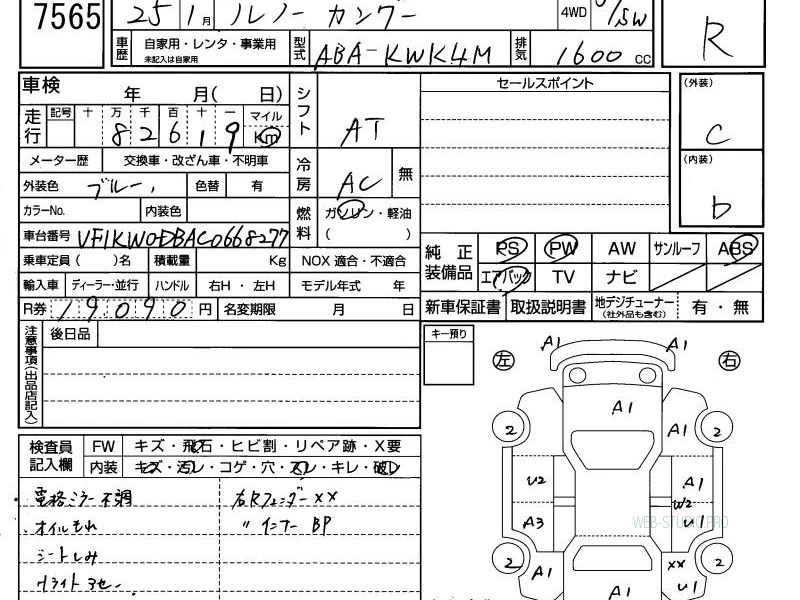 7565
25 1月 ルノー カングー
4WD 5W
R
車歴 自家用・レンタ・事業用
未記入は自家用
型式 ABA-KWK4M
排気 1600 cc
車検 年 月( 日)
シフト AT
セールスポイント
(外装)
C
(内装)
D
走行 記号 十 万 千 百 十 一 マイル
82619 Km
メーター歴 交換車・改ざん車・不明車
冷房 AC 無
外装色 ブルー 色替 有
カラーNo. 内装色
燃料 ガソリン・軽油
( )
車台番号 VF1KW0DBAC0668277
乗車定員( )名 積載量 Kg NOX 適合・不適合
輸入車 ディーラー・並行 ハンドル 右H・左H モデル年式 年
R券 19090 円 名変期限 月 日
純正装備品 PS PW AW サンルーフ ABS
エアバック TV ナビ
新車保証書 取扱説明書 地デジチューナー (社外品も含む) 有・無
注意事項(出品店記入)
後日品
キー預り
左 右
A1 A1
A1
A1
2 2
U2 A1
W2
A3 U1
2 2
A1 XX
U1
A1
検査員記入欄 FW キズ・飛石・ヒビ割・リペア跡・X要
内装 キズ・汚レ・コゲ・穴・スレ・キレ・破レ
電格ミラー不調 右Rフェンダー XX
オイルもれ 〃 インナー BP
シートしみ
WEB-STUDIO.PRO